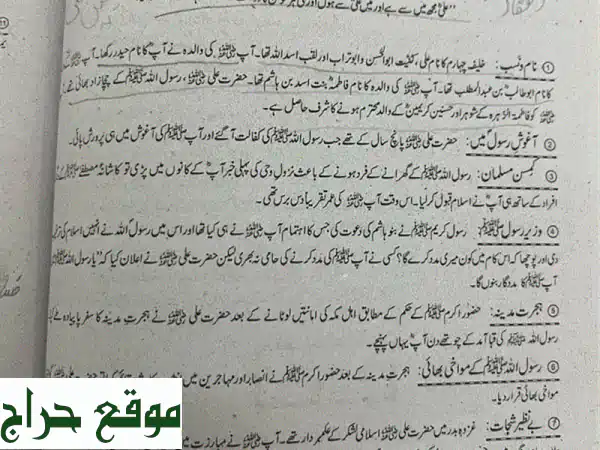 علی مجھ میں سے ہے اور میں علی سے ہوں اور
① نام و نسب: خلیفہ چہارم کا نام علی، کنیت ابوالحسن و ابوتراب اور لقب اسد اللہ تھا۔ آپ ﷺ کی والدہ نے آپ کا نام حیدر رکھا۔ آپ
کا نام ابو طالب بن عبدالمطلب تھا۔ آپ کی والدہ کا نام فاطمہ بنت اسد بن ہاشم تھا۔ حضرت علی، رسول اللہ ﷺ کے چچازاد بھائی تھے
کو فاطمۃ الزہرہ کے شوہر اور حسنین کریمین کے والد محترم ہونے کا شرف حاصل ہے۔
② آغوش رسول میں: حضرت علی پانچ سال کے تھے جب رسول اللہ ﷺ کی کفالت آ گئے اور آپ ﷺ کی آغوش میں ہی پرورش پائی۔
③ کمسن مسلمان: رسول اللہ ﷺ کے گھرانے کے فرد ہونے کے باعث نزول وحی کی پہلی خبر آپ کے کانوں میں پڑی تو کاشانہ مصطفےٰ ﷺ
افراد کے ساتھ ہی آپ نے اسلام قبول کر لیا۔ اس وقت آپ کی عمر تقریباً دس برس تھی۔
④ وزیر رسول ﷺ: رسول کریم ﷺ نے بنو ہاشم کی دعوت کی جس کا اہتمام آپ نے ہی کیا تھا اور اس میں رسول اللہ نے انھیں اسلام کی
دی اور پوچھا کہ اس کام میں کون میری مدد کرے گا؟ کسی نے آپ کی مدد کرنے کی حامی نہ بھری لیکن حضرت علی نے اعلان کیا کہ "یا رسول اللہ
آپ ﷺ کا مددگار بنوں گا۔
⑤ ہجرت مدینہ: حضور اکرم ﷺ کے حکم کے مطابق اہل مکہ کی امانتیں لوٹانے کے بعد حضرت علی نے ہجرت مدینہ کا سفر پا پیادہ
رسول اللہ ﷺ کی قبا آمد کے چوتھے دن آپ یہاں پہنچے۔
⑥ رسول اللہ ﷺ کے مواخی بھائی: ہجرت مدینہ کے بعد حضور اکرم ﷺ نے انصار اور مہاجرین میں
مواخی بھائی قرار دیا۔
⑦ بے نظیر شجاعت: غزوہ بدر میں حضرت علی اسلامی لشکر کے علمبردار تھے۔ آپ نے مبارزت میں
موقع حراج